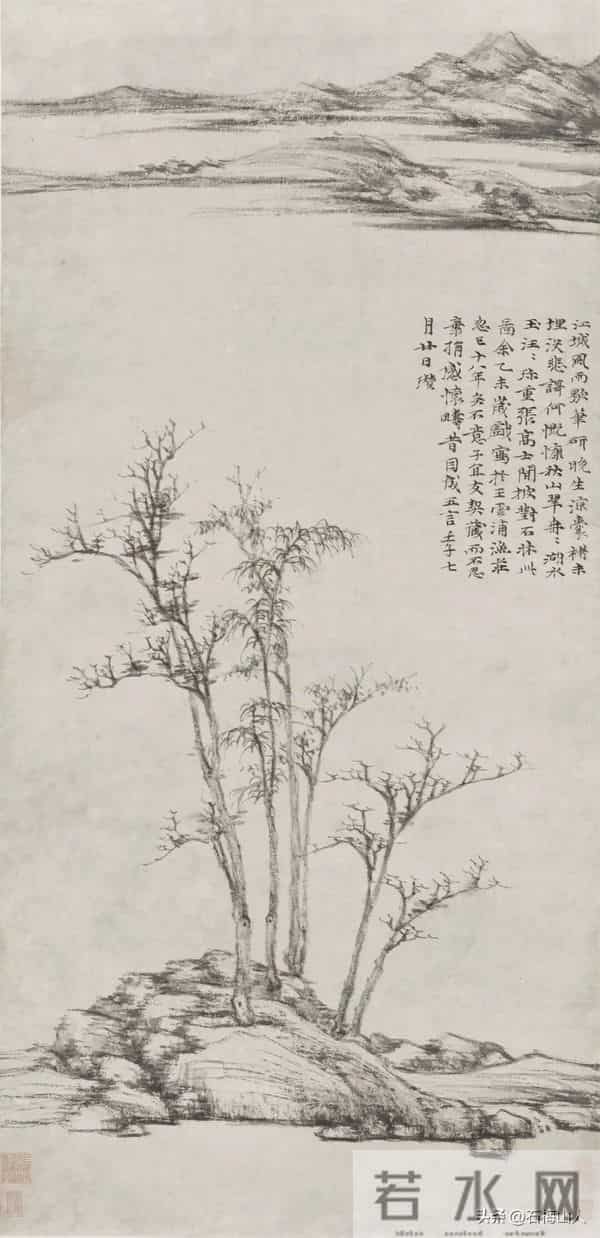 江城風雨歇筆研晚生涼囊楮未
埋没悲謌何慨慷秋山翠冉〻湖水
玉汪〻珍重張高士閒披對石牀此
圖余乙未歲戲寫於王雲浦漁莊
忽已十八年矣不意子宜友契藏而不忍
棄捐感懷疇昔因成五言壬子七
月廿日瓚
若水网
头条 @石
山人